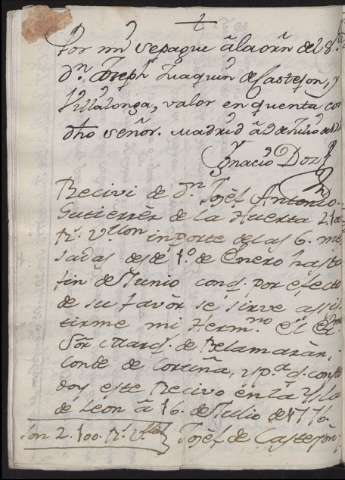 Por mi se pague â la orn del S.r
Dn. Joseph Joaquin de Castejon, y
Villalonga, valor en quenta con
dho señor. Madrid â de Julio de
Ignacio
Recivi de Dn. Josef Antonio
Gutierrez de la Huerta 2100
Rs. Vellon inporte de las 6. me
sadas desde 1.º de Enero hasta
fin de Junio con q.e por efecto
de su favor se sirve assis
tirme mi Herm.no el
Sor Marqs. de Belamazan,
Conde de Coruña, y pa. q. conste
doy este Recivo en la Ysla
de Leon â 16 de Julio de 1776.
Son 2.100. Rs. Vn. Josef de Castejon